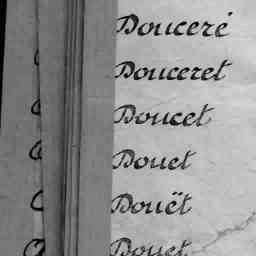 Douceré
Douceret
Doucet
Douet
Douët
Douet